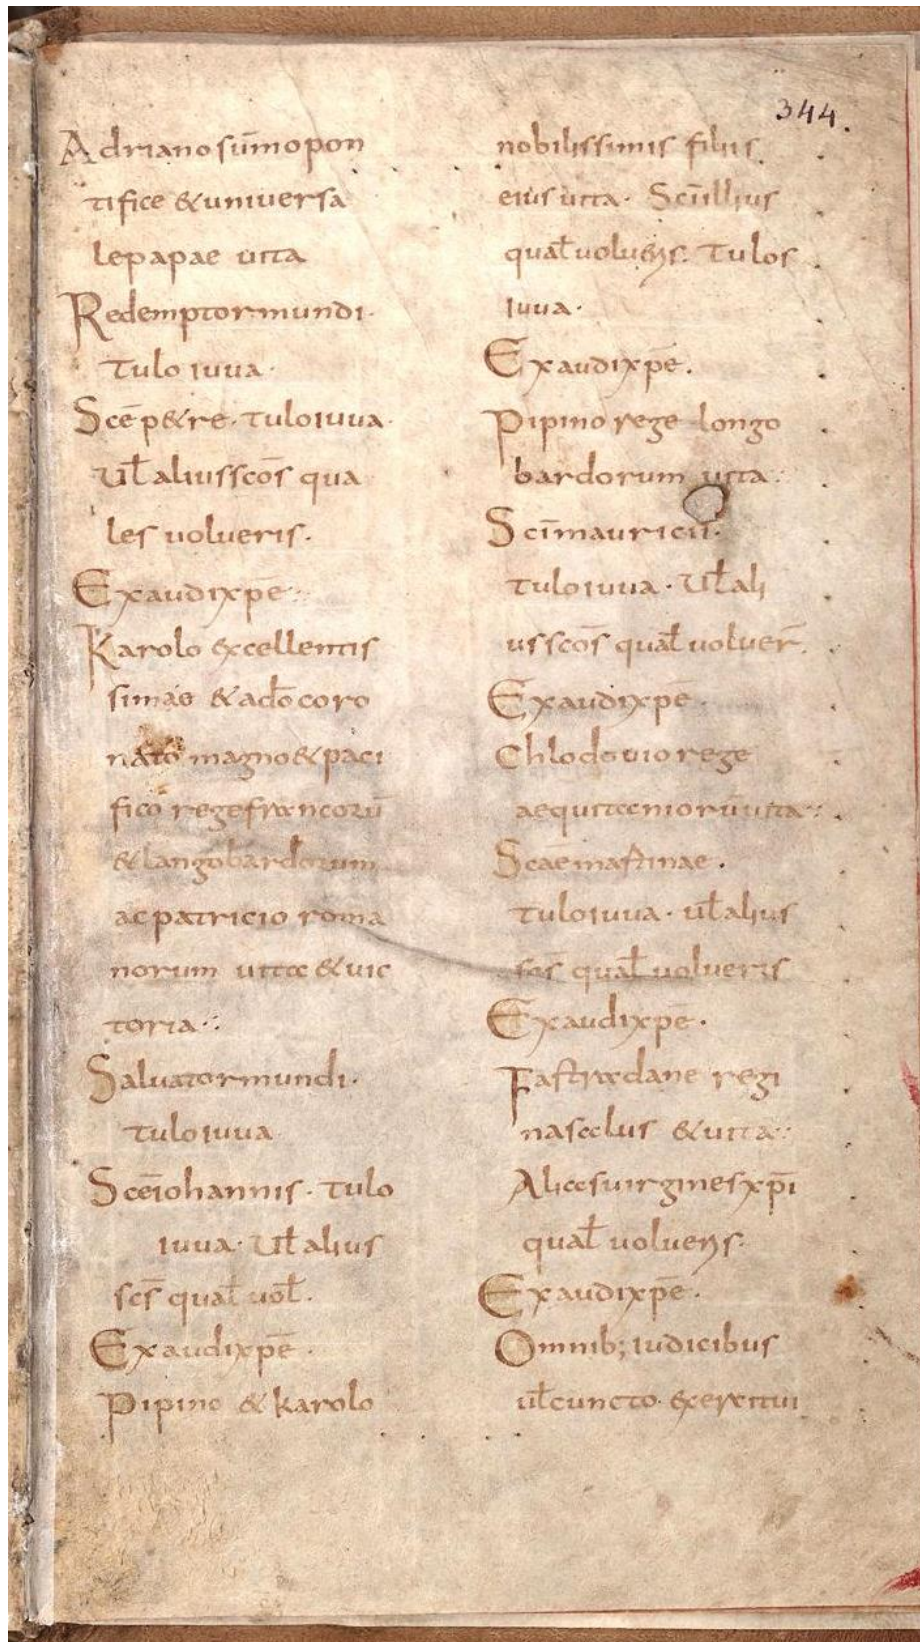 344.
Adriano sūmo pon
tifice & universa
le papae uita
Redemptor mundi·
Tu lo iuua·
Scē p&re· tu lo iuua·
Ul̄ alius scōs qua
les uolueris.
Exaudi xp̄e·:
Karolo excellentis
simae & a dō coro
nato magno & paci
fico rege francorū
& langobardorum
ac patricio roma
norum uita & uic
toria·:·
Saluator mundi·
tu lo iuua
Scē iohannis· Tu lo
iuua· Ul̄ alius
scs̄ qual̄ uol̄·
Exaudi xp̄e·
Pipino & karolo
nobilissimis filiis
eius uita· Sc̄i illius
qual̄ uolueris· Tu los
iuua·
Exaudi xp̄e.
Pipino rege longo
bardorum uita·:
Sc̄i mauricii·
tu lo iuua· Ul̄ ali
us scōs qual̄ uoluer̄·
Exaudi xp̄e·
Chlodouio rege
aequitaniorū uita·:·
Scāe martinae·
tu lo iuua· ul̄ alius
scs̄ qual̄ uolueris
Exaudi xp̄e·
Fastradane regi
na salus & uita·:·
Alias uirgines xp̄i
qual̄ uolueris·
Exaudi xp̄e·
Omnib; iudicibus
ul̄ cuncto exercitui